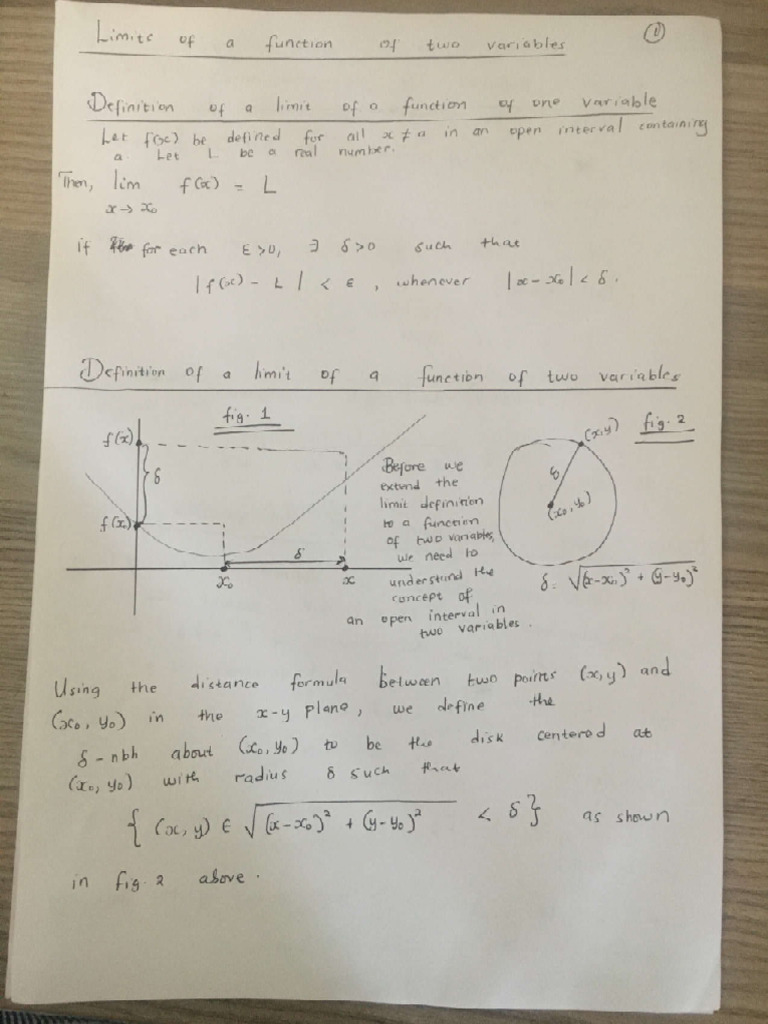 Limits of a function of two variables
1
Definition of a limit of a function of one variable
Let f(x) be defined for all x ≠ a in an open interval containing
a. Let L be a real number.
Then, lim f(x) = L
x → x₀
if for each ε>0, ∃ δ>0 such that
|f(x) - L| < ε, whenever |x - x₀| < δ.
Definition of a limit of a function of two variables
fig. 1
f(x)
δ
f(x₀)
δ
x₀
x
Before we
extend the
limit definition
to a function
of two variables,
we need to
understand the
concept of
an open interval in
two variables.
fig. 2
(x,y)
δ
(x₀, y₀)
δ = √(x-x₀)² + (y-y₀)²
Using the distance formula between two points (x,y) and
(x₀, y₀) in the x-y plane, we define the
δ-nbh about (x₀, y₀) to be the disk centered at
(x₀, y₀) with radius δ such that
{ (x, y) ∈ √(x-x₀)² + (y-y₀)² < δ } as shown
in fig. 2 above.